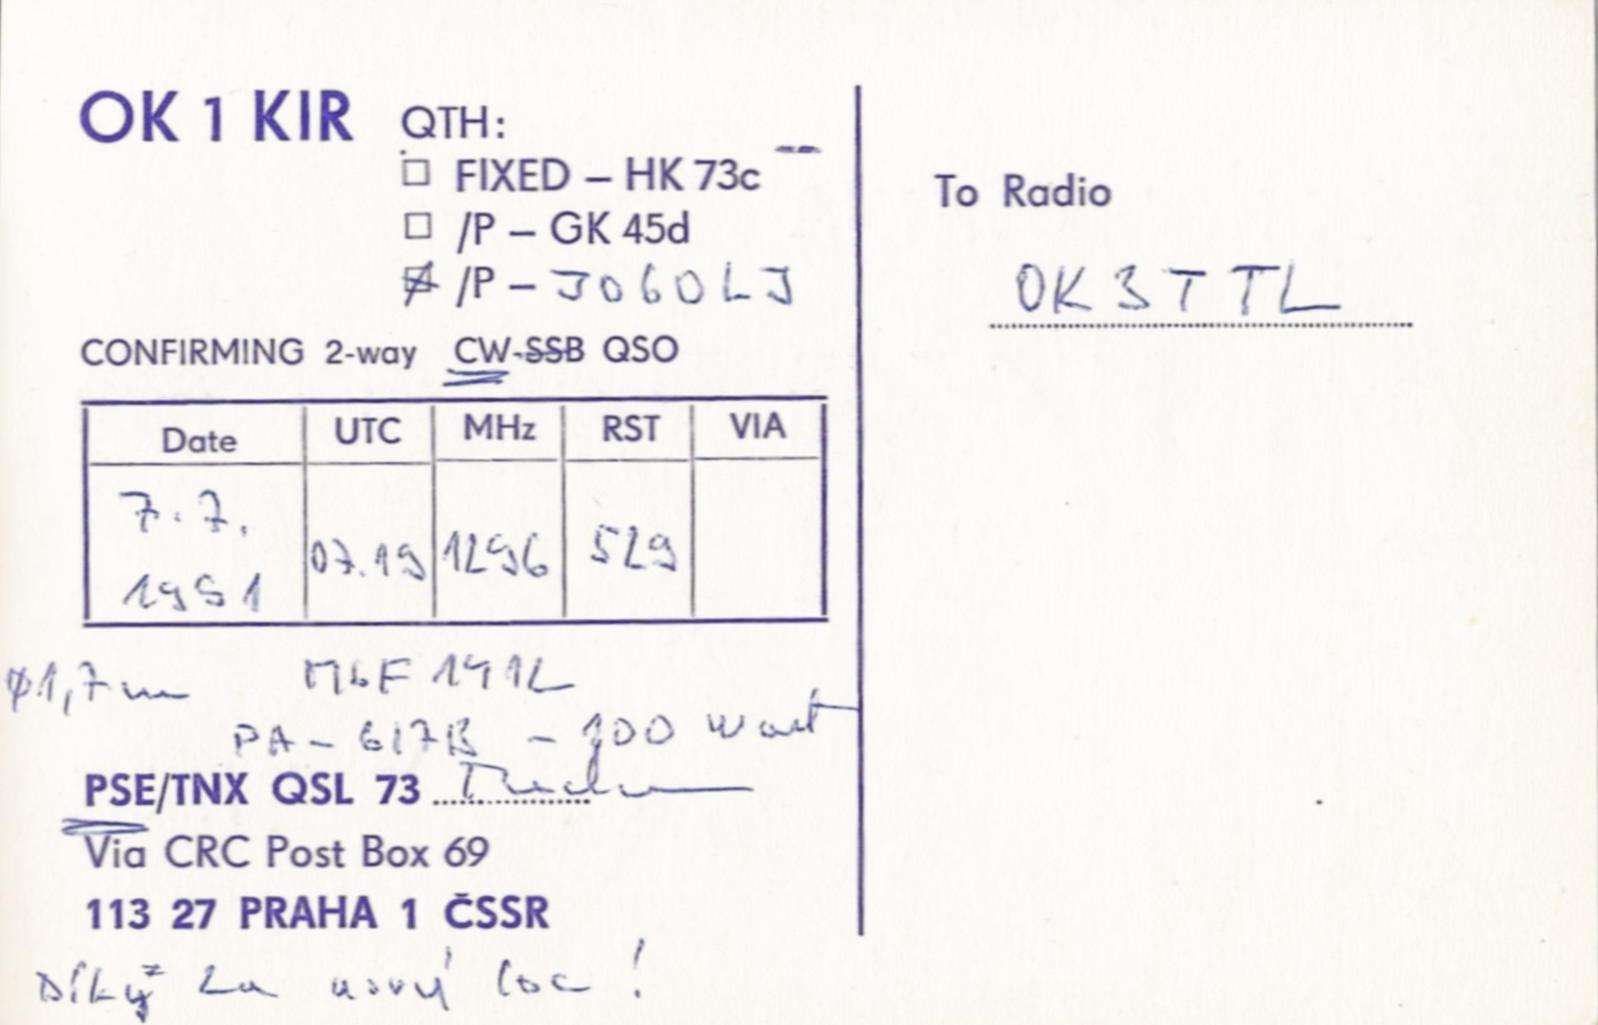 OK 1 KIR QTH:
FIXED – HK 73c
/P – GK 45d
/P – JO60LJ
CONFIRMING 2-way CW-SSB QSO
Date UTC MHz RST VIA
7.7.
1991 07.19 1296 529
ø1,7m MGF 1412
PA – 617B – 100 Watt
PSE/TNX QSL 73
Via CRC Post Box 69
113 27 PRAHA 1 ČSSR
Díky za nový loc!
To Radio
OK3TTL